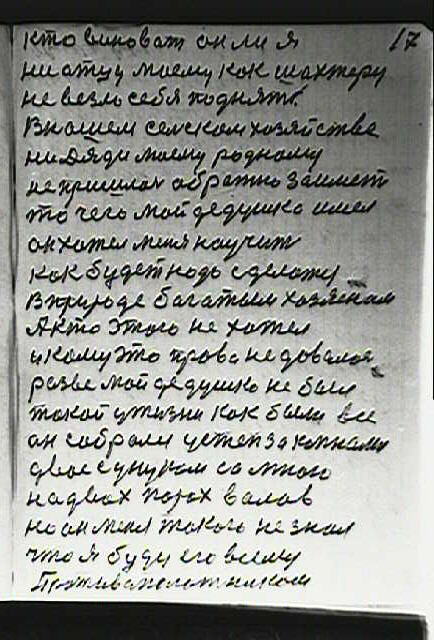 кто виноват он ли я 17
ни атцу моему как шахтеру
не везло себя поднять
В нашем селском хозяйстве
ни Дяди моему родному
не пришлас обратно заимет
то чего мой дедушка имел
он хотел меня научит
как будет надо сделать
В природе багатым хозяеном
А кто этого не хотел
и кому это права не довалос
разве мой дедушка не был
такой у жизни как были все
он собрали успел за
двое со мною
на двох парох валов
но он меня такого не знал
что я буду его всему